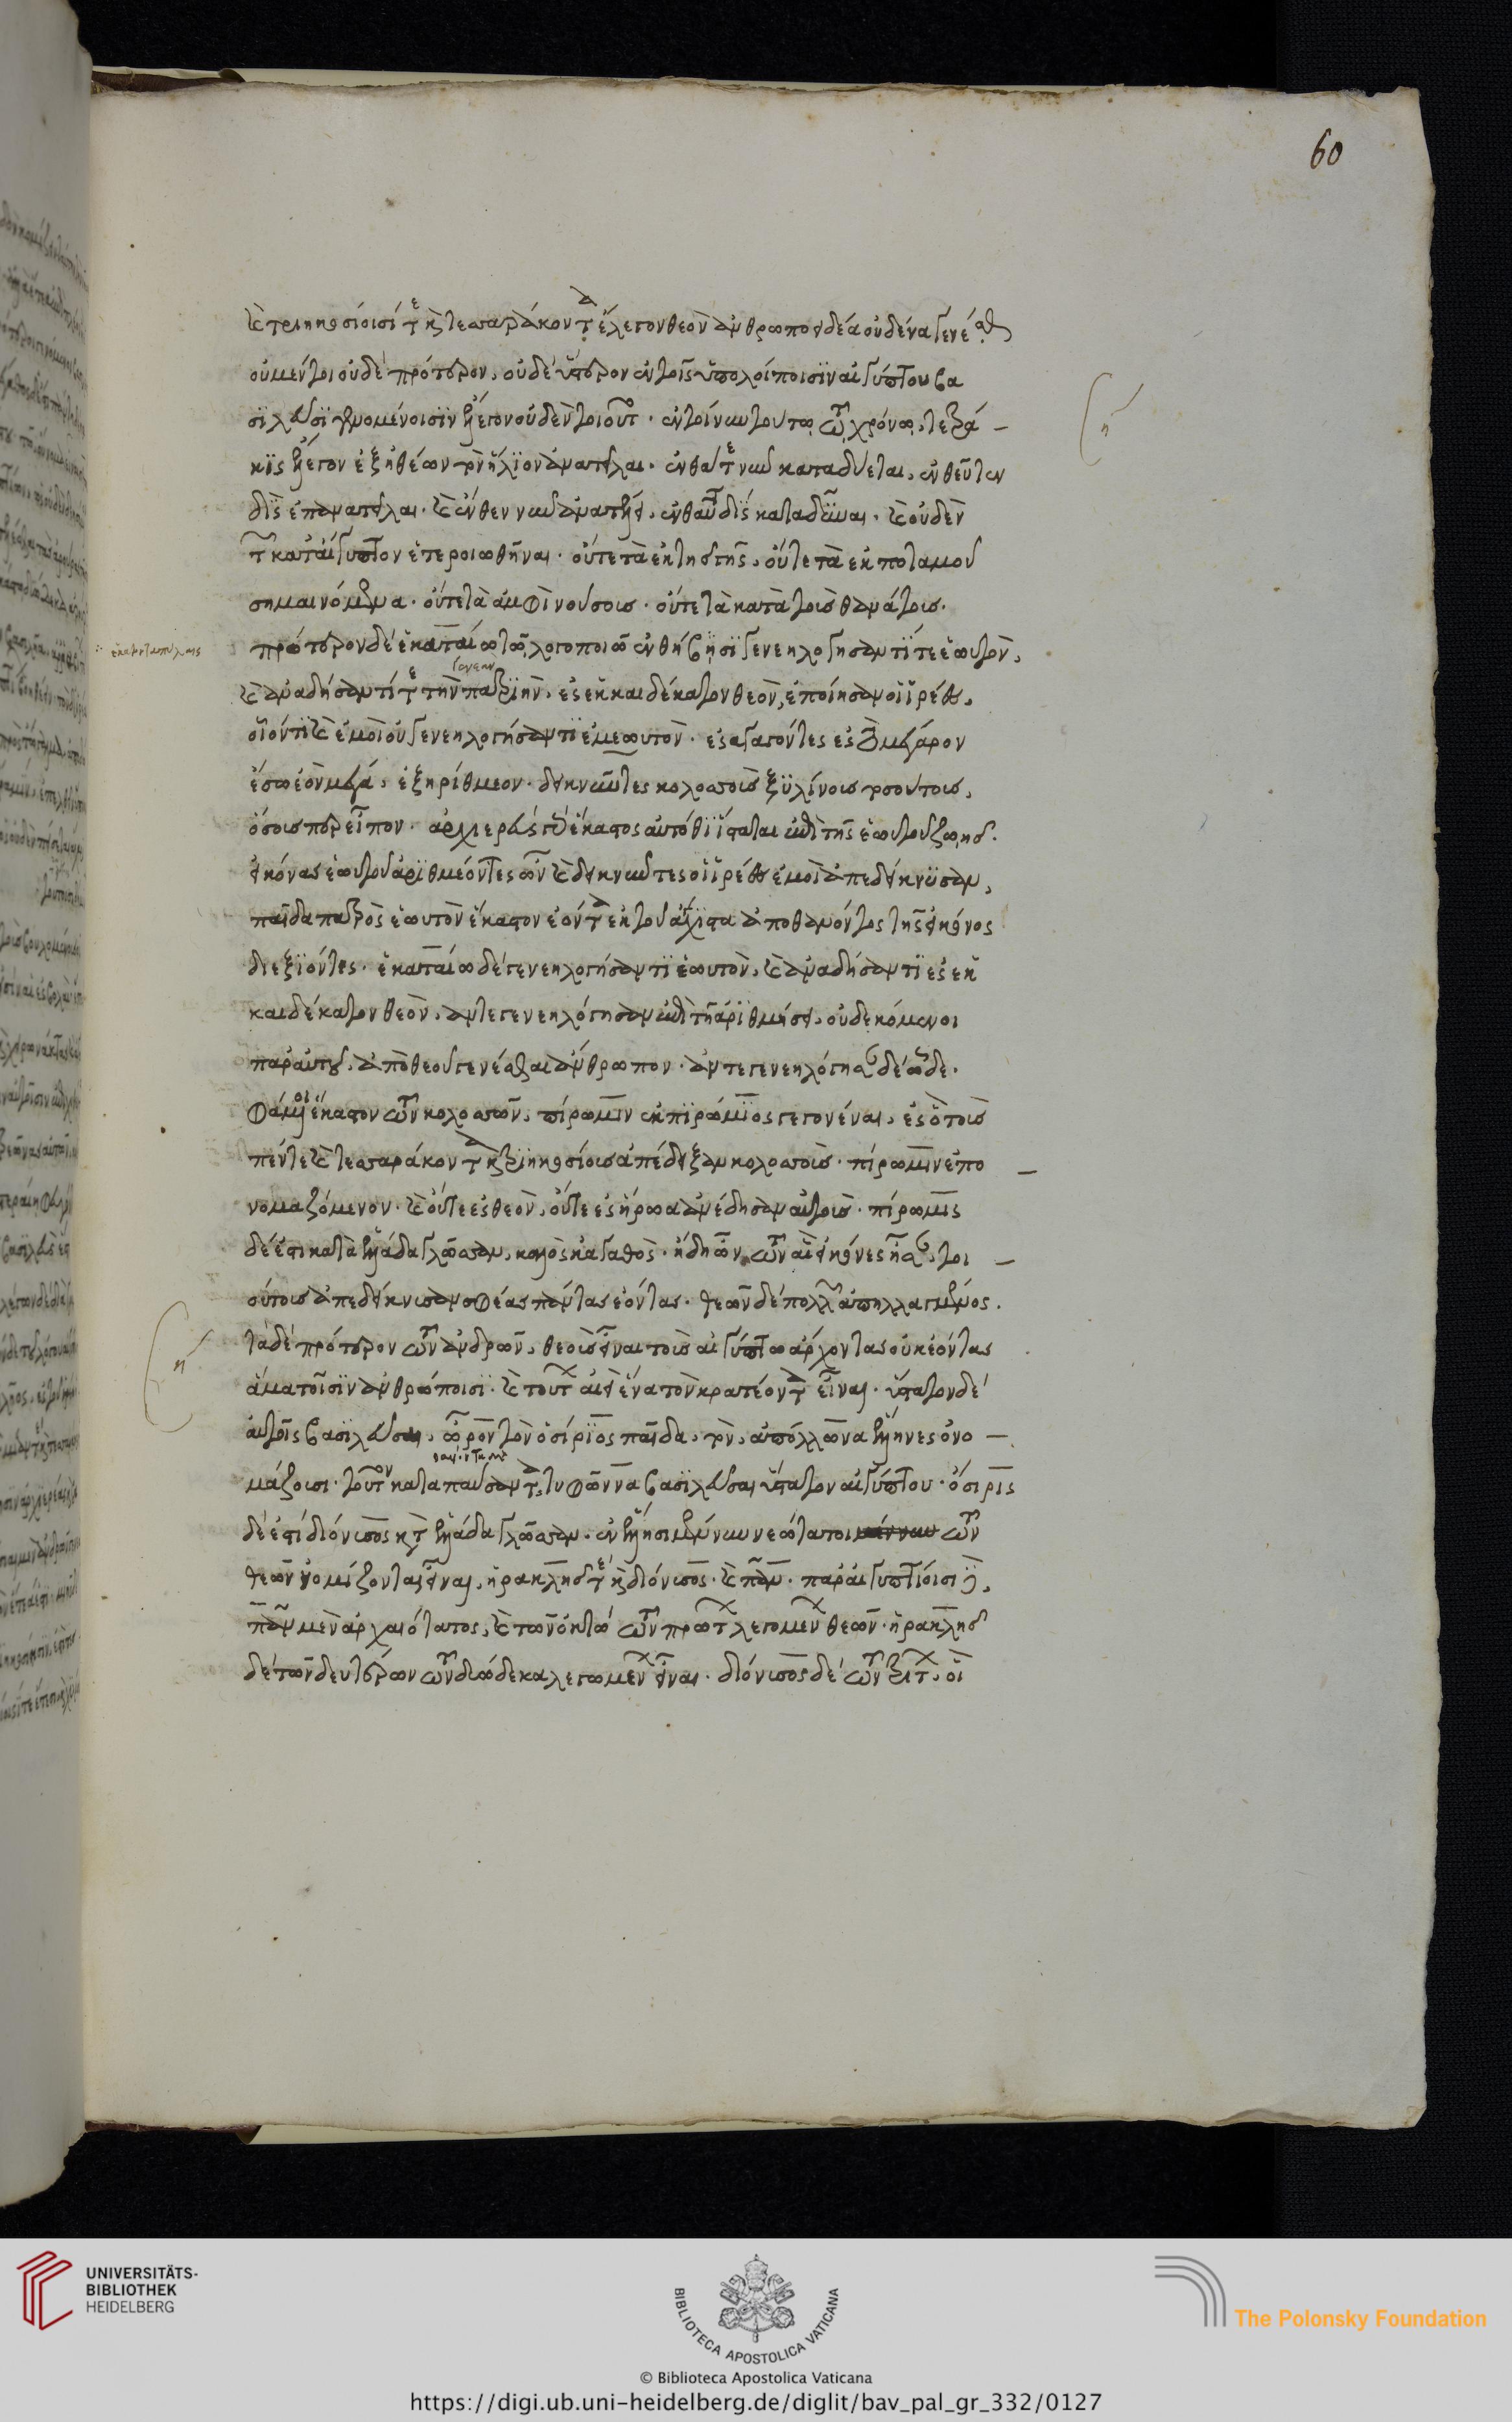 καὶ τριηκοσίοισί τε καὶ τεσσαράκοντα ἔλεγον θεὸν ἀνθρωποειδέα οὐδένα γενέσθαι
οὐ μέντοι οὐδὲ πρότερον, οὐδὲ ὕστερον ἐν τοῖς ὑπολοίποισιν αἰγύπτου βα
σιλεῦσι γενομένοισιν ἔλεγον οὐδὲν τοιοῦτο. ἐν τοίνυν τούτῳ τῷ χρόνῳ, τετρά
κις ἔλεγον ἐξ ἠθέων τὸν ἥλιον ἀνατεῖλαι. ἔνθα τε νῦν καταδύεται, ἐνθεῦτεν
δὶς ἐπανατεῖλαι. καὶ ἔνθεν νῦν ἀνατέλλει, ἐνθαῦτα δὶς καταδῦναι. καὶ οὐδὲν
τῶν κατ' αἴγυπτον ἑτεροιωθῆναι. οὔτε τὰ ἐκ τῆς γῆς, οὔτε τὰ ἐκ ποταμοῦ
σημαινόμενα. οὔτε τὰ ἀμφὶ νούσους. οὔτε τὰ κατὰ τοὺς θανάτους.
πρότερον δὲ ἑκαταίῳ τῷ λογοποιῷ ἐν θήβῃσι γενεηλογήσαντί τε ἑωυτὸν,
καὶ ἀναδήσαντί τε τὴν πατριὴν. ἐς ἑκκαιδέκατον θεὸν, ἐποίησαν οἱ ἱρέες,
οἷόν τι καὶ ἐμοὶ οὐ γενεηλογήσαντι ἐμεωυτὸν. ἐσαγαγόντες ἐς τὸ μέγαρον
ἔσω ἐὸν μέγα, ἐξηρίθμεον. δεικνύντες κολοσσοὺς ξυλίνους τοσούτους,
ὅσους περ εἶπον. ἀρχιερεὺς γὰρ ἕκαστος αὐτόθι ἵσταται ἐπὶ τῆς ἑωυτοῦ ζωῆς.
εἰκόνας ἑωυτοῦ ἀριθμέοντες ὦν καὶ δεικνύντες οἱ ἱρέες ἐμοὶ ἀπεδείκνυσαν,
παῖδα πατρὸς ἑωυτὸν ἕκαστον ἐόντα ἐκ τοῦ ἄγχιστα ἀποθανόντος τῆς εἰκόνος
διεξιόντες. ἑκαταίῳ δὲ γενεηλογήσαντι ἑωυτὸν, καὶ ἀναδήσαντι ἐς ἑκ
καιδέκατον θεὸν, ἀντεγενεηλόγησαν ἐπὶ τῇ ἀριθμήσει, οὐ δεκόμενοι
παρ' αὐτοῦ, ἀπὸ θεοῦ γενέσθαι ἄνθρωπον. ἀντεγενεηλόγησαν δὲ ὧδε.
φάμενοι ἕκαστον τῶν κολοσσῶν, πίρωμιν ἐκ πιρώμιος γεγονέναι, ἐς ὃ τοὺς
πέντε καὶ τεσσαράκοντα καὶ τριηκοσίους ἀπέδειξαν κολοσσοὺς. πίρωμιν ἐπο
νομαζόμενον. καὶ οὔτε ἐς θεὸν, οὔτε ἐς ἥρωα ἀνέδησαν αὐτοὺς. πίρωμις
δέ ἐστι κατὰ ἑλλάδα γλῶσσαν, καλὸς κἀγαθὸς. ἤδη ὦν τῶν αἱ εἰκόνες ἦσαν, τοι
ούτους ἀπεδείκνυσαν σφέας πάντας ἐόντας. θεῶν δὲ πολλὸν ἀπηλλαγμένους.
τὰ δὲ πρότερον τῶν ἀνδρῶν, θεοὺς εἶναι τοὺς αἰγύπτῳ ἄρχοντας οὐκ ἐόντας
ἅμα τοῖσιν ἀνθρώποισι. καὶ τούτων αἰεὶ ἕνα τὸν κρατέοντα εἶναι. ὕστατον δὲ
αὐτῆς βασιλεῦσαι, ὦρον τὸν ὀσίριος παῖδα, τὸν, ἀπόλλωνα ἕλληνες ὀνο
μάζουσι. τοῦτον καταπαύσαντα, τυφῶνα βασιλεῦσαι ὕστατον αἰγύπτου. ὄσιρις
δέ ἐστι διόνυσος κατὰ ἑλλάδα γλῶσσαν. ἐν ἕλλησι μέν νυν νεώτατοι τῶν
θεῶν νομίζονται εἶναι, ἡρακλῆς τε καὶ διόνυσος. καὶ πάν. παρ' αἰγυπτίοισι δὲ,
πὰν μὲν ἀρχαιότατος, καὶ τῶν ὀκτὼ τῶν πρώτων λεγομένων θεῶν. ἡρακλῆς
δὲ τῶν δευτέρων τῶν δυώδεκα λεγομένων εἶναι. διόνυσος δὲ τῶν τρίτων, οἳ
60
UNIVERSITÄTS-
BIBLIOTHEK
HEIDELBERG
BIBLIOTECA APOSTOLICA VATICANA
The Polonsky Foundation
© Biblioteca Apostolica Vaticana
https://digi.ub.uni-heidelberg.de/diglit/bav_pal_gr_332/0127